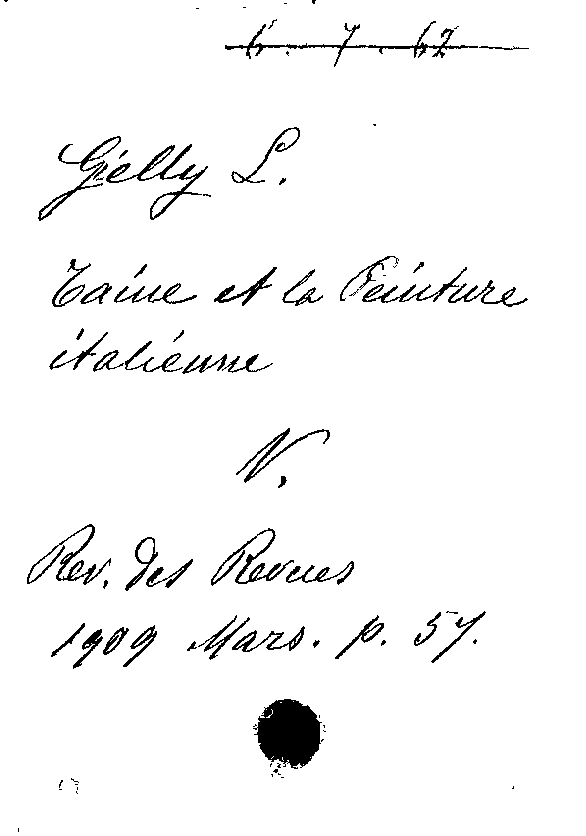 6. 7. 62
Gielly L.
Taine et la Peinture
italienne
V.
Rev. des Revues
1909 Mars. p. 57.